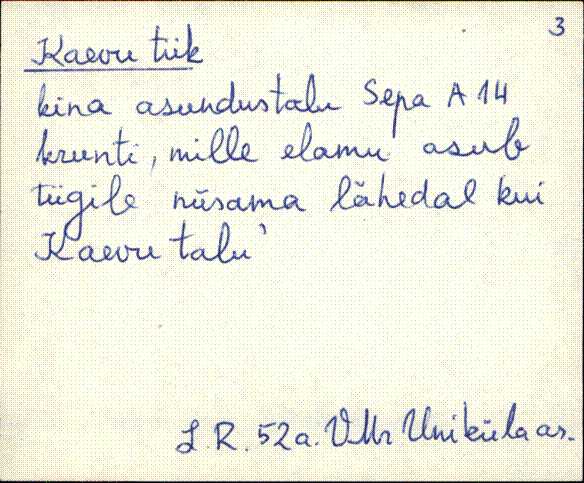 3
Kaevu tiik
kina asundustalu Sepa A 14
krunti, mille elamu asub
tiigile niisama lähedal kui
Kaevu talu'
L. R. 52 a. VMr Uniküla as.